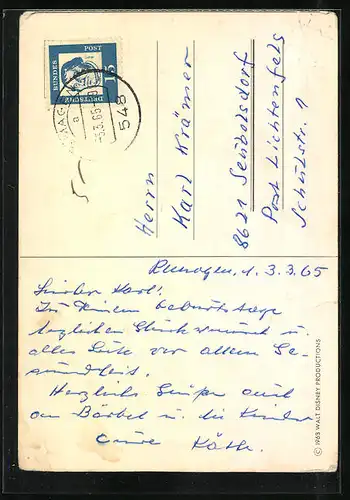 DEUTSCHE
BUNDES
POST
15
-5.3.65
548
Herrn
Karl Krämer
8621 Seubelsdorf
Post Lichtenfels
Schulstr. 1
Remagen, 3.3.65
Lieber Karl!
Zu Deinem Geburtstage
herzlichen Glückwunsch u.
alles Gute vor allem Ge-
sundheit.
Herzliche Grüße auch
an Bärbel u. die Kinder
Käthe.
© 1963 WALT DISNEY PRODUCTIONS